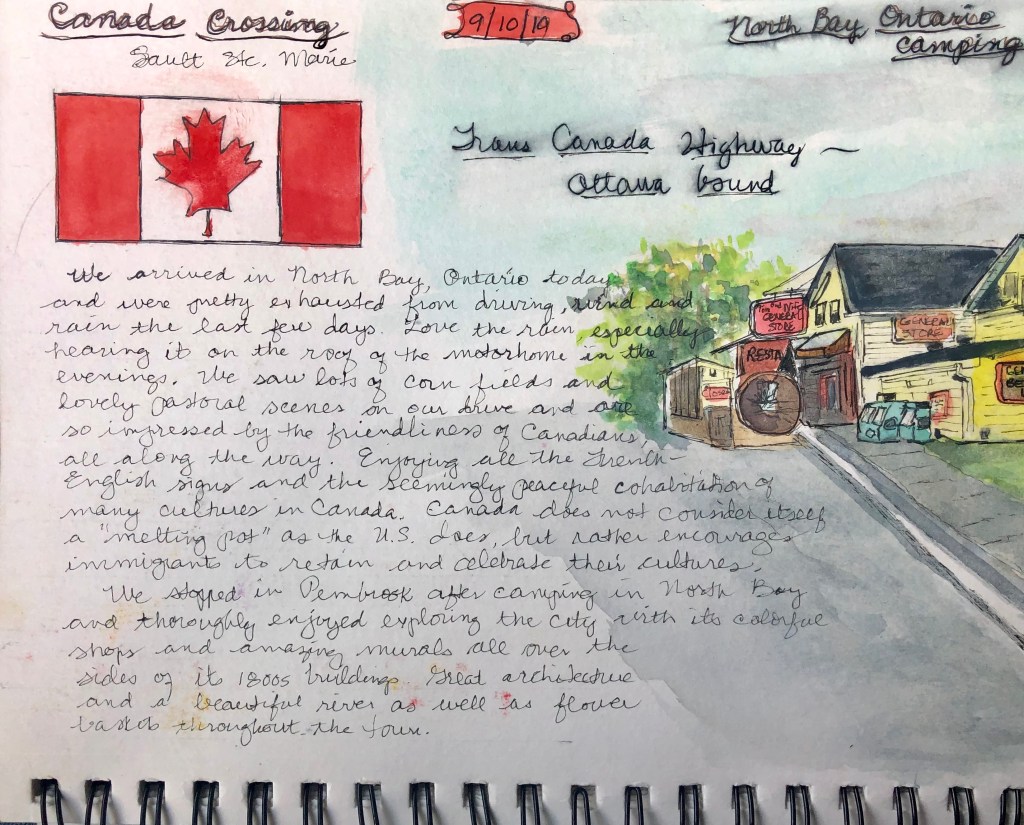 Canada Crossing
Sault Ste. Marie
9/10/19
North Bay Ontario
camping
Trans Canada Highway ~
Ottawa bound
We arrived in North Bay, Ontario today
and were pretty exhausted from driving, wind and
rain the last few days. Love the rain, especially
hearing it on the roof of the motorhome in the
evenings. We saw lots of corn fields and
lovely pastoral scenes on our drive and are
so impressed by the friendliness of Canadians,
all along the way. Enjoying all the French-
English signs and the seemingly peaceful cohabitation of
many cultures in Canada. Canada does not consider itself
a "melting pot" as the U.S. does, but rather encourages
immigrants to retain and celebrate their cultures.
We stopped in Pembrook after camping in North Bay
and thoroughly enjoyed exploring the city with its colorful
shops and amazing murals all over the
sides of its 1800s buildings. Great architecture
and a beautiful river as well as flower
throughout the town.
GENERAL
STORE
RESTA
GENERAL
STORE